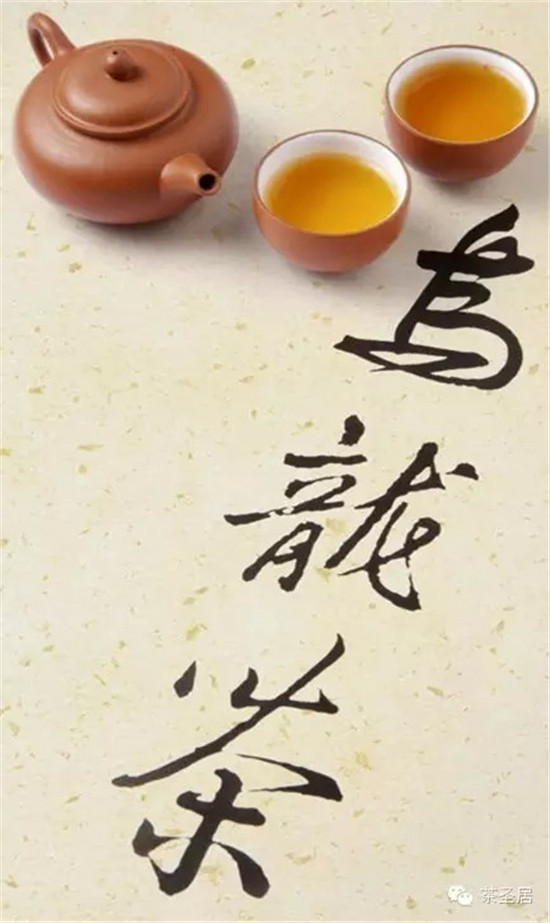 烏龍茶
茶圣居